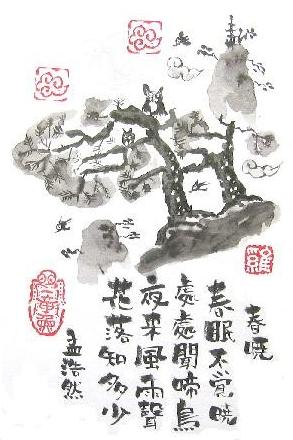 春暁
春眠不覚暁
處處聞啼鳥
夜来風雨聲
花落知多少
孟浩然
羅